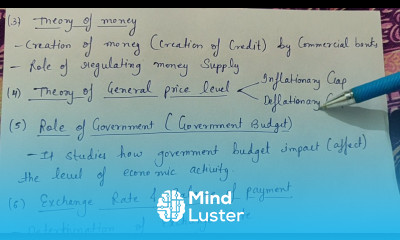 (3) Theory of money
- Creation of money (Creation of Credit) by Commercial banks
- Role of regulating money Supply
(4) Theory of General price level < Inflationary Gap
Deflationary
(5) Role of Government (Government Budget)
- It studies how government budget impact (affect)
the level of economic activity.
(6) Exchange Rate & of payment
Mind
Luster